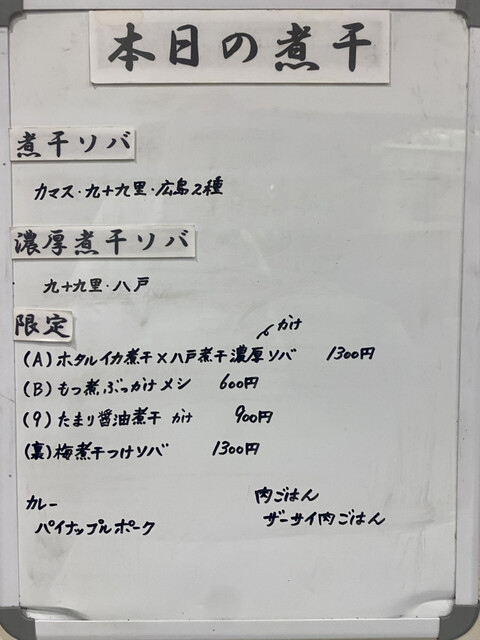 本日の煮干
煮干ソバ
カマス・九十九里・広島2種
濃厚煮干ソバ
九十九里・八戸
限定
かけ
(A)ホタルイカ煮干×八戸煮干濃厚ソバ 1300円
(B)もつ煮ぶっかけメシ 600円
(9)たまり醤油煮干 かけ 900円
(裏)梅煮干つけソバ 1300円
カレー 肉ごはん
パイナップルポーク ザーサイ肉ごはん